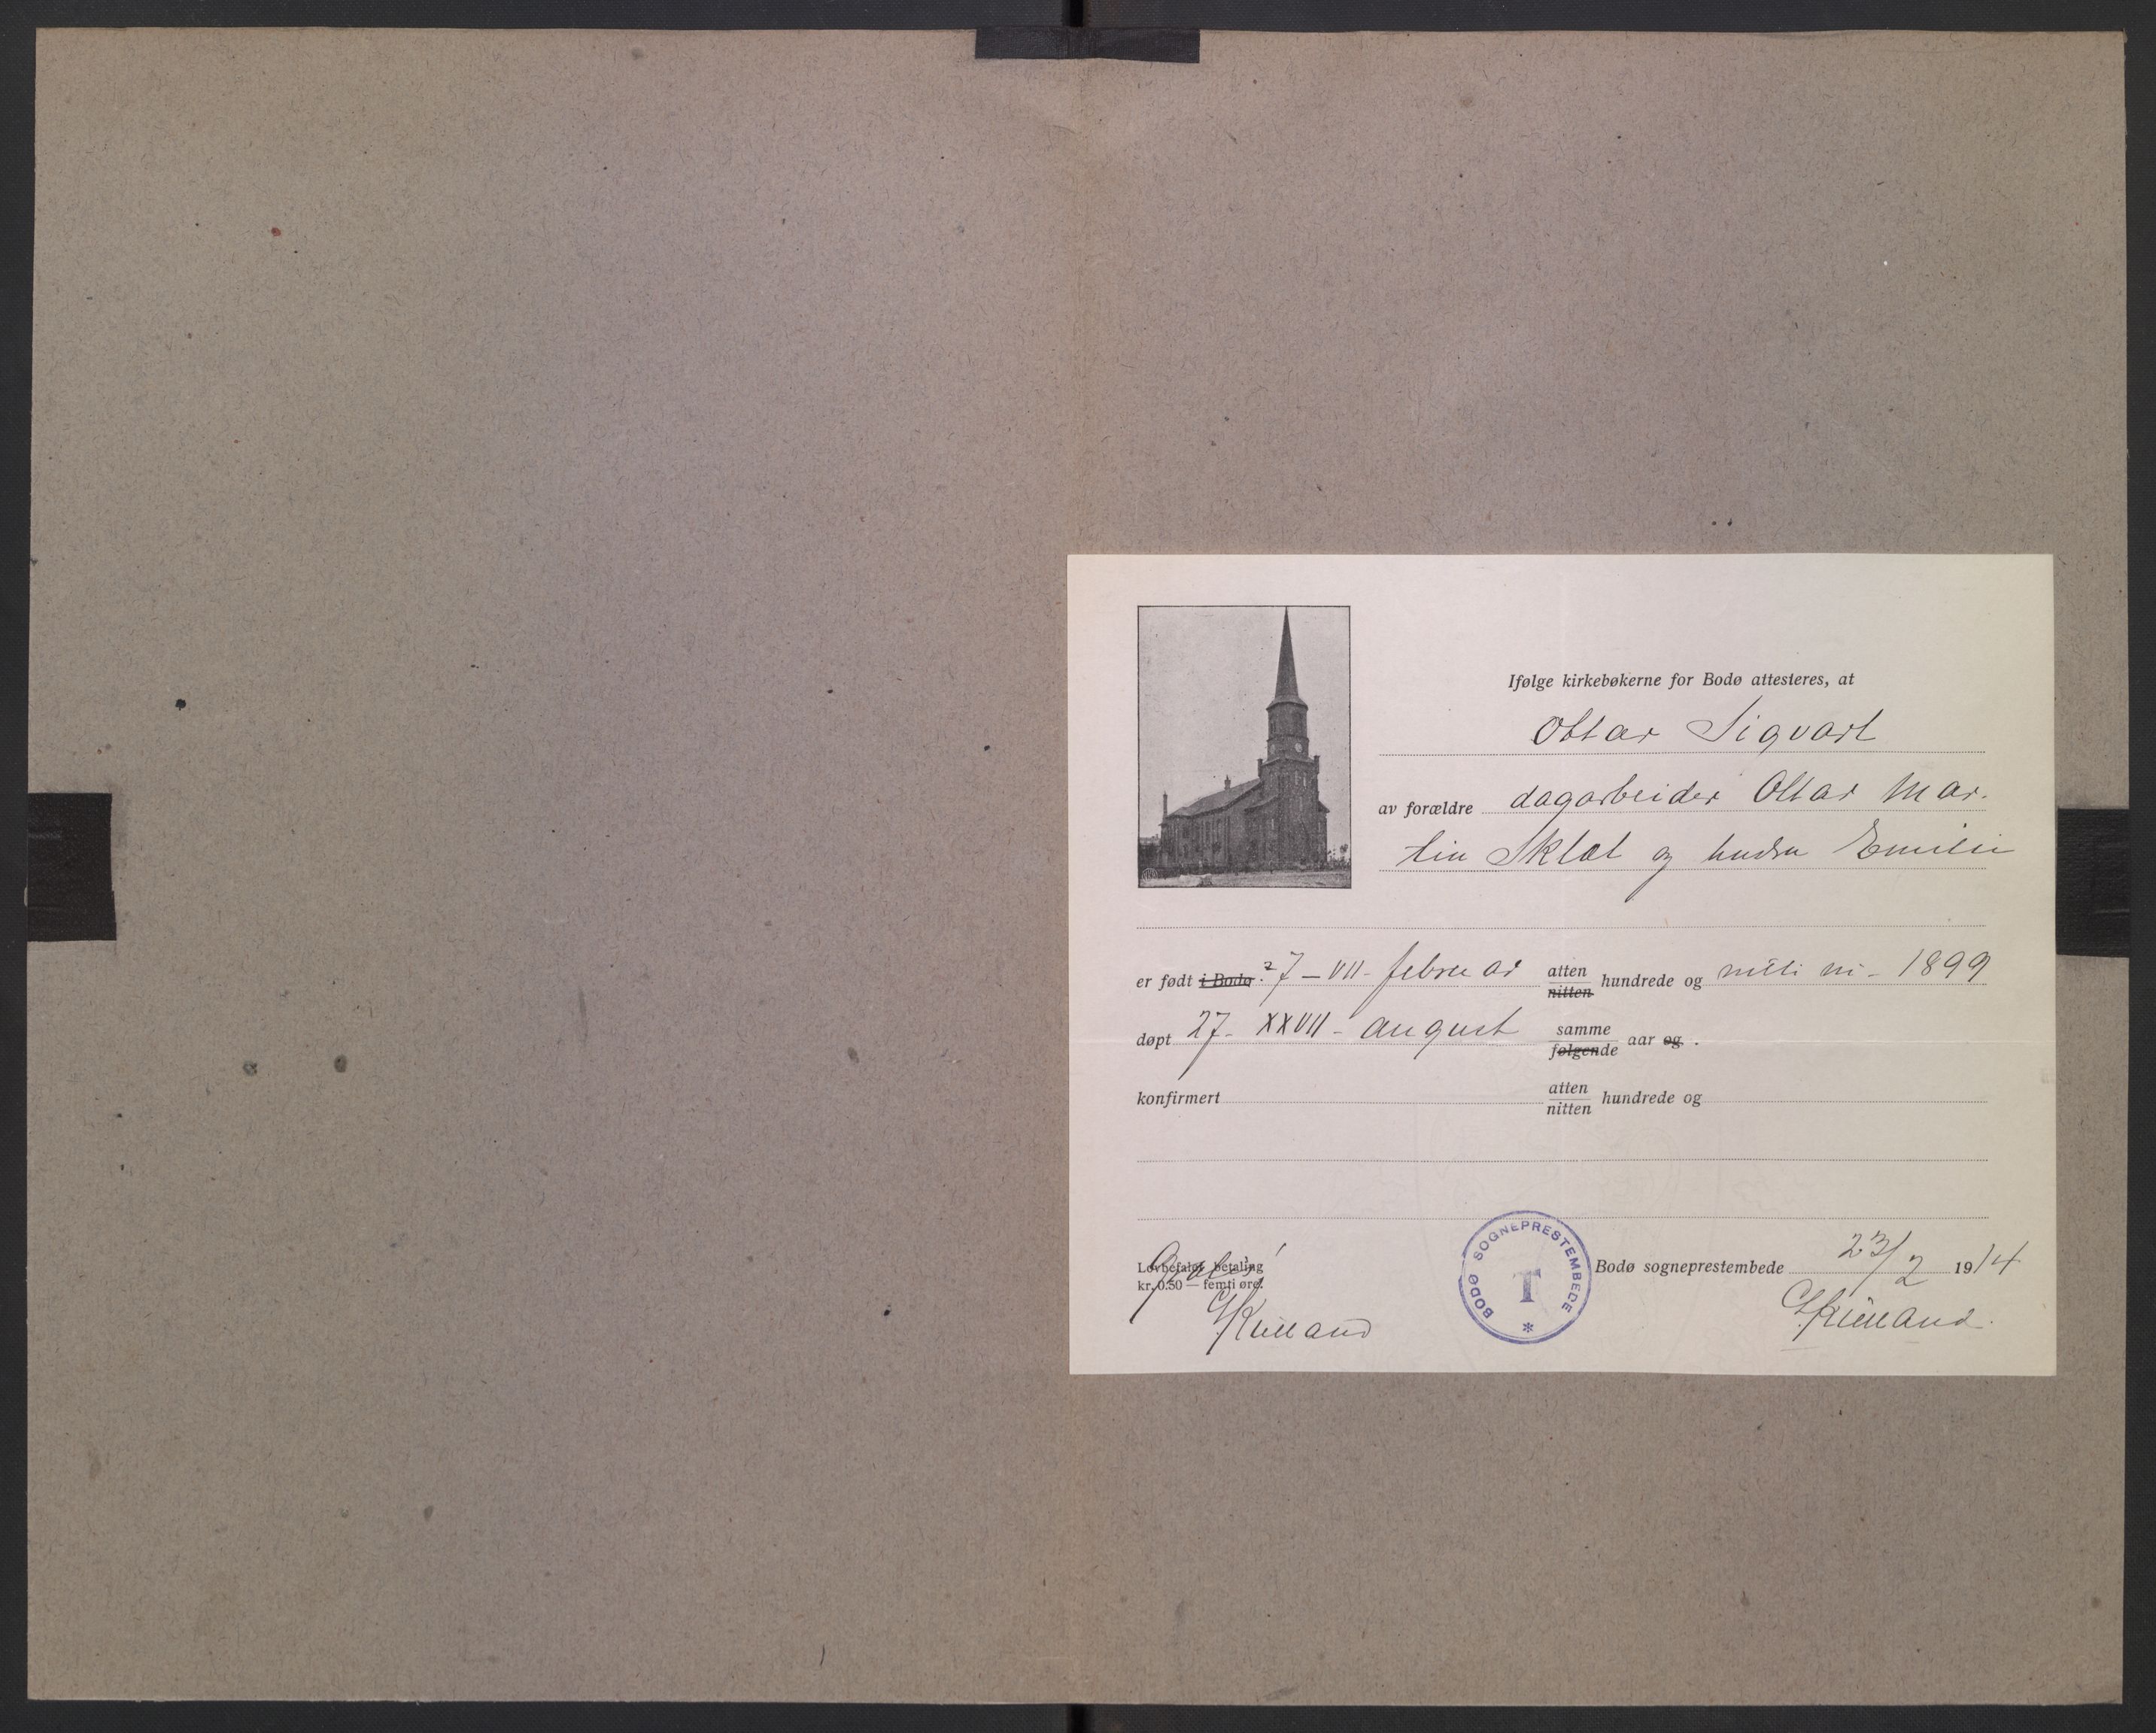 Ifølge kirkebøkerne for Bodø attesteres, at
Ottar Sigvart
av forældre dagarbeider Ottar Mar-
tin Sklet og hustru Emilie
er født i Bodø 7 - VII - februar atten nitten hundrede og nitti ni - 1899
døpt 27 - XXVII - august samme følgende aar og .
konfirmert atten nitten hundrede og
Lovbefalet betaling
kr. 0.50 — femti øre.
Gratis!
Kielland
BODØ SOGNEPRESTEMBEDE
Bodø sogneprestembede 23/2 1914
Kielland.